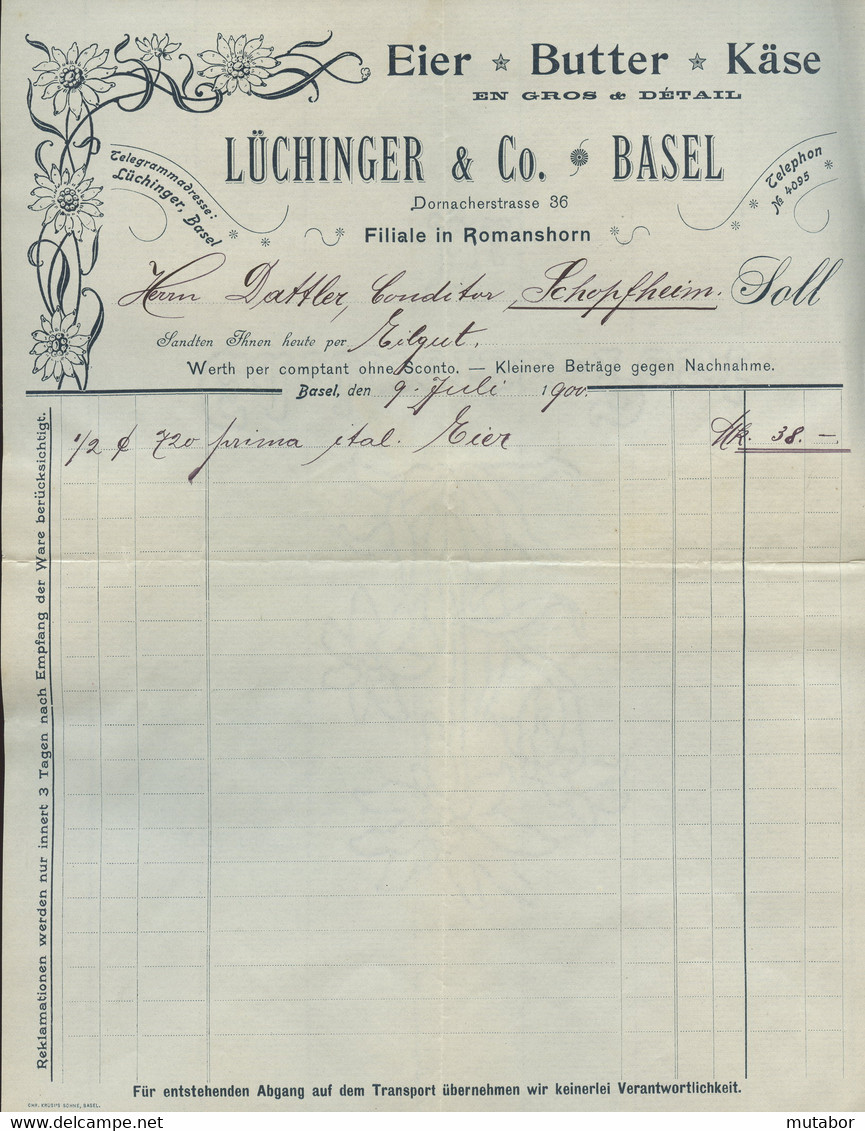 Eier * Butter * Käse
EN GROS & DÉTAIL
LÜCHINGER & Co. BASEL
Telegrammadresse:
Lüchinger, Basel
Telephon
No 4095
Dornacherstrasse 36
Filiale in Romanshorn
Herrn Dattler, Conditor, Schopfheim. Soll
Sandten Ihnen heute per Eilgut.
Werth per comptant ohne Sconto. — Kleinere Beträge gegen Nachnahme.
Basel, den 9. Juli 1900.
1/2 ¢ 720 prima ital. Eier Mk. 38.–
Reklamationen werden nur innert 3 Tagen nach Empfang der Ware berücksichtigt.
Für entstehenden Abgang auf dem Transport übernehmen wir keinerlei Verantwortlichkeit.
CHR. KRÜSI'S SÖHNE, BASEL.
mutabor